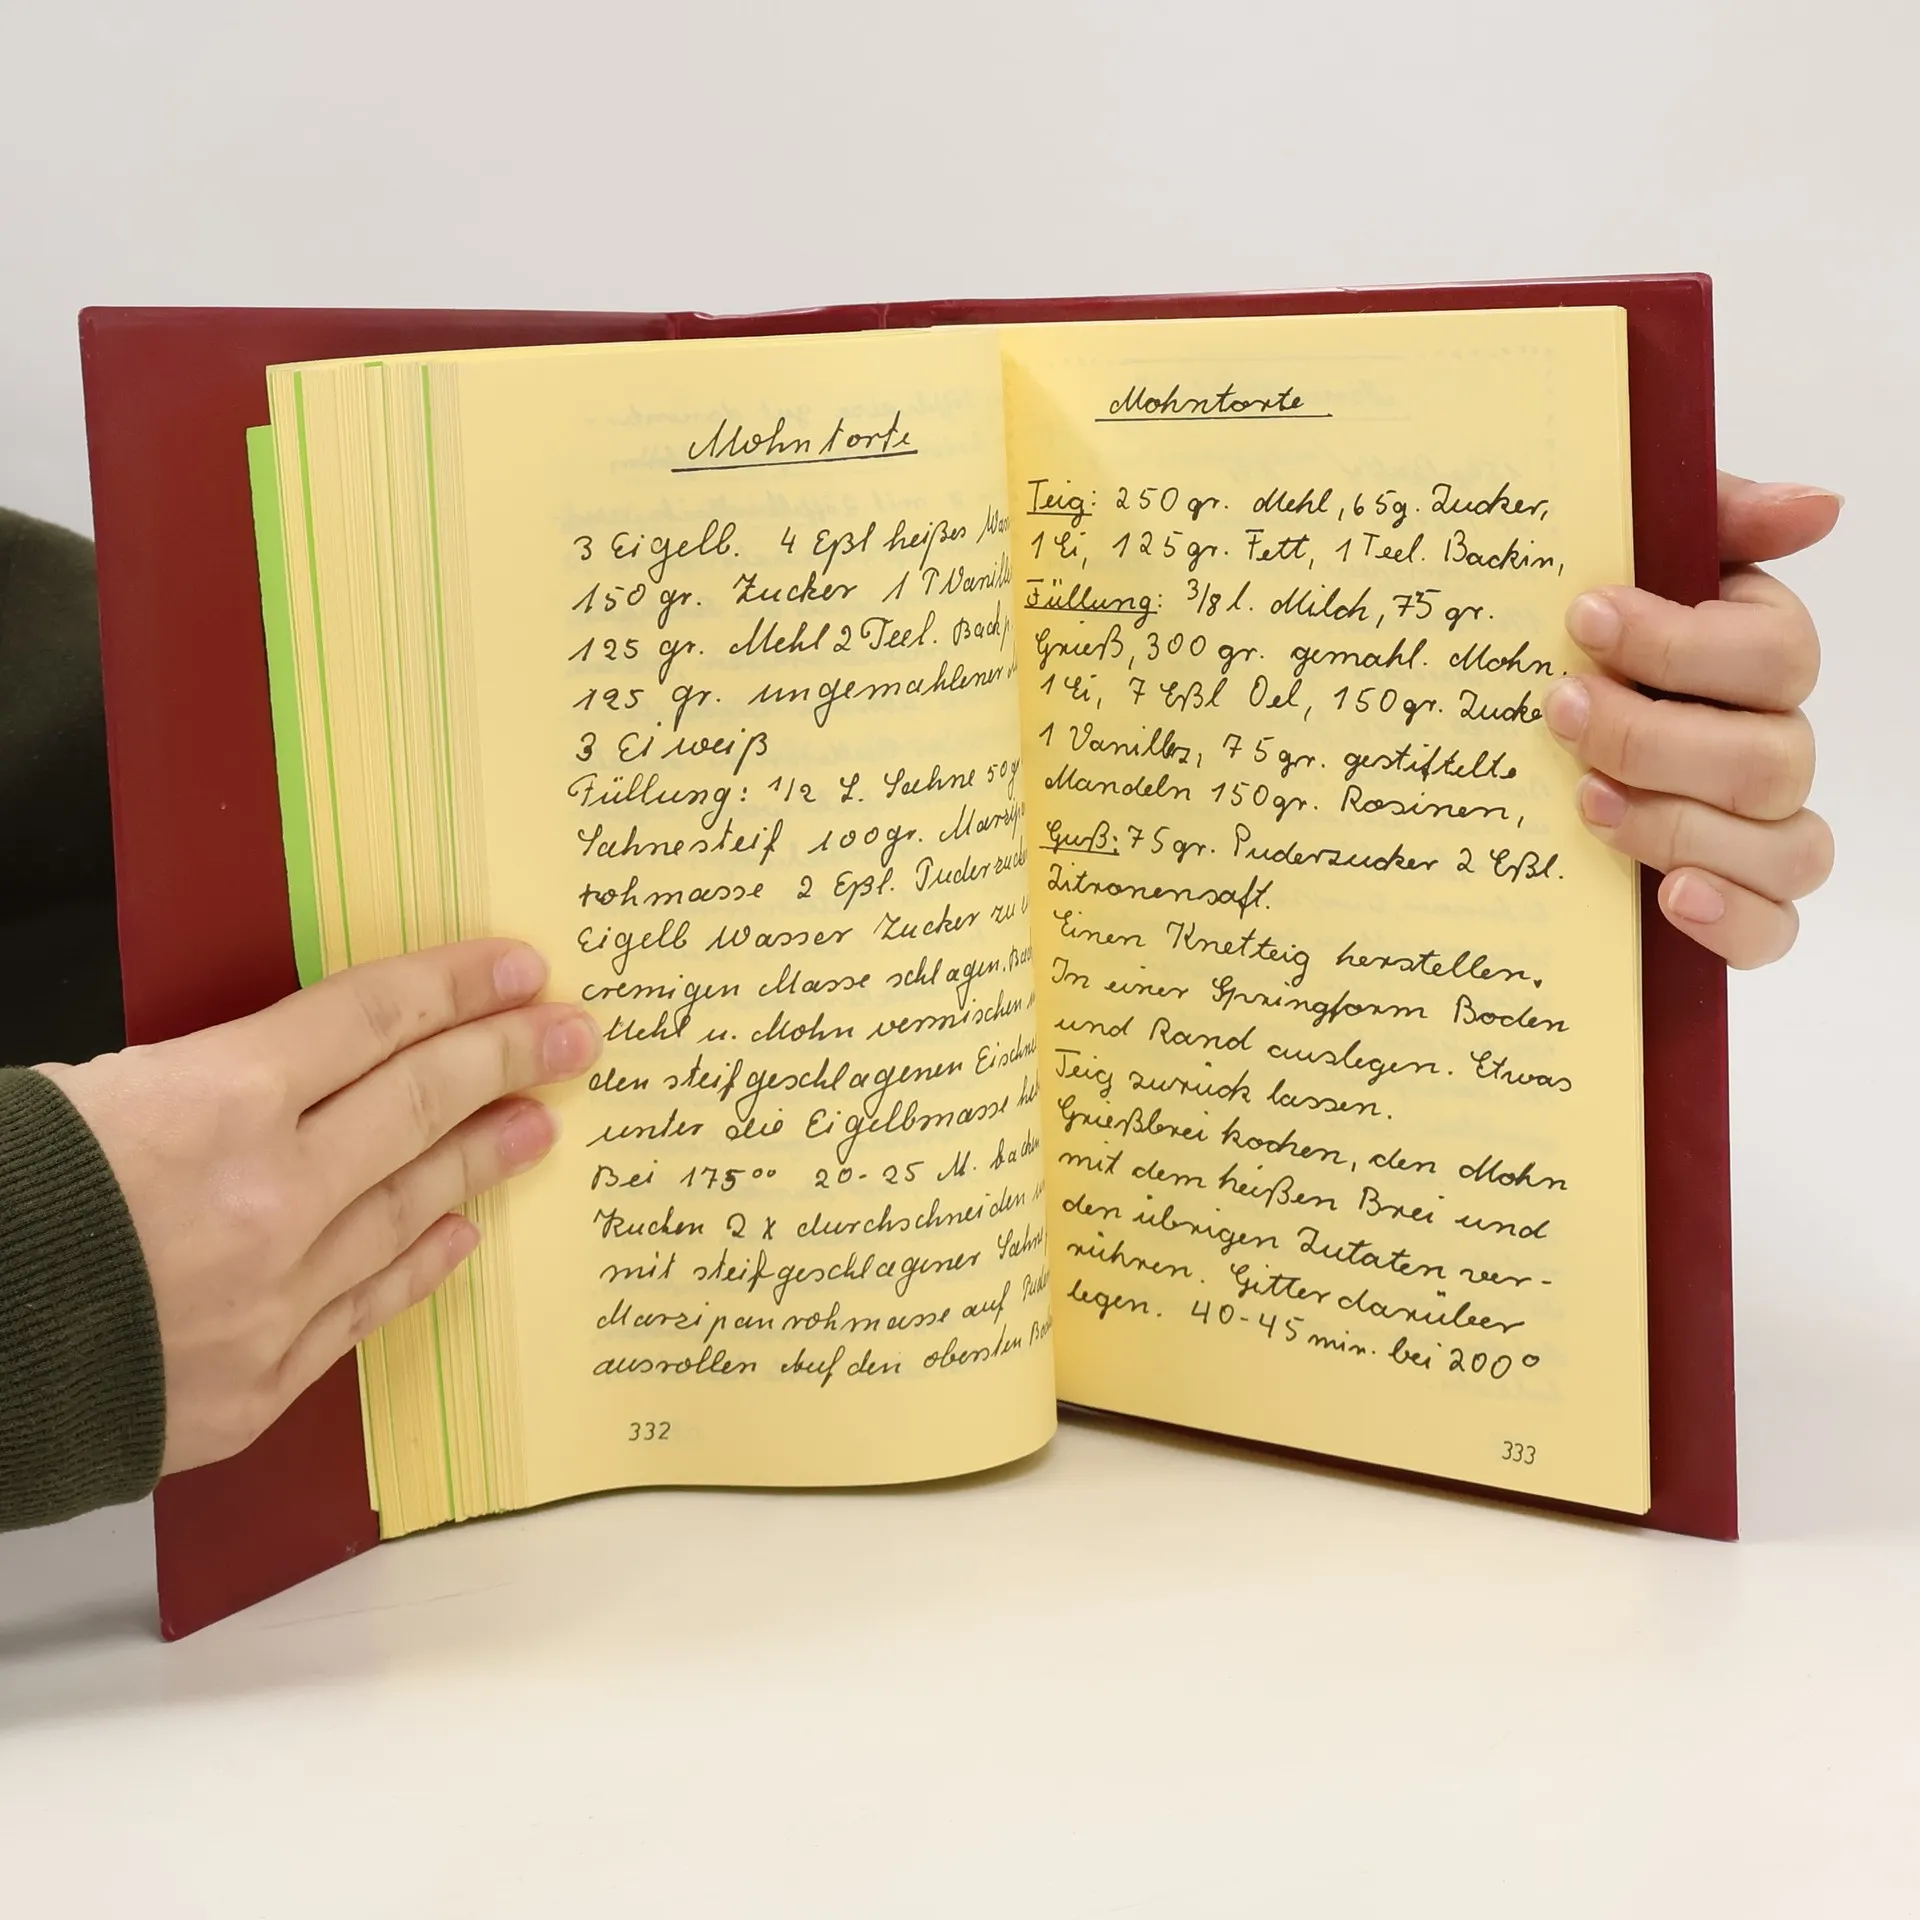 Mohntorte
3 Eigelb. 4 Eßl heißes
150 gr. Zucker 1 P Vanill
125 gr. Mehl 2 Teel. Backp
125 gr. ungemahlener
3 Eiweiß
Füllung: 1/2 L. Sahne 50 g
Sahnesteif 100gr. Marzip
rohmasse 2 Eßl. Puderzuck
Eigelb Wasser Zucker zu
cremigen Masse schlagen.
Mehl u. Mohn vermischen
den steifgeschlagenen Eischn
unter die Eigelbmasse
Bei 175°° 20-25 M. backen
Kuchen 2 x durchschneiden
mit steifgeschlagener Sahn
Marzipanrohmasse auf Puder
ausrollen Auf den obersten
332
Mohntorte
Teig: 250gr. Mehl, 65g. Zucker,
1 Ei, 125gr. Fett, 1 Teel. Backin,
Füllung: 3/8 l. Milch, 75 gr.
Grieß, 300 gr. gemahl. Mohn.
1 Ei, 7 Eßl Oel, 150gr. Zucke
1 Vanillez, 75gr. gestiftelte
Mandeln 150gr. Rosinen,
Guß: 75gr. Puderzucker 2 Eßl.
Zitronensaft.
Einen Knetteig herstellen.
In einer Springform Boden
und Rand auslegen. Etwas
Teig zurück lassen.
Grießbrei kochen, den Mohn
mit dem heißen Brei und
den übrigen Zutaten ver-
rühren. Gitter darüber
legen. 40-45 min. bei 200°
333